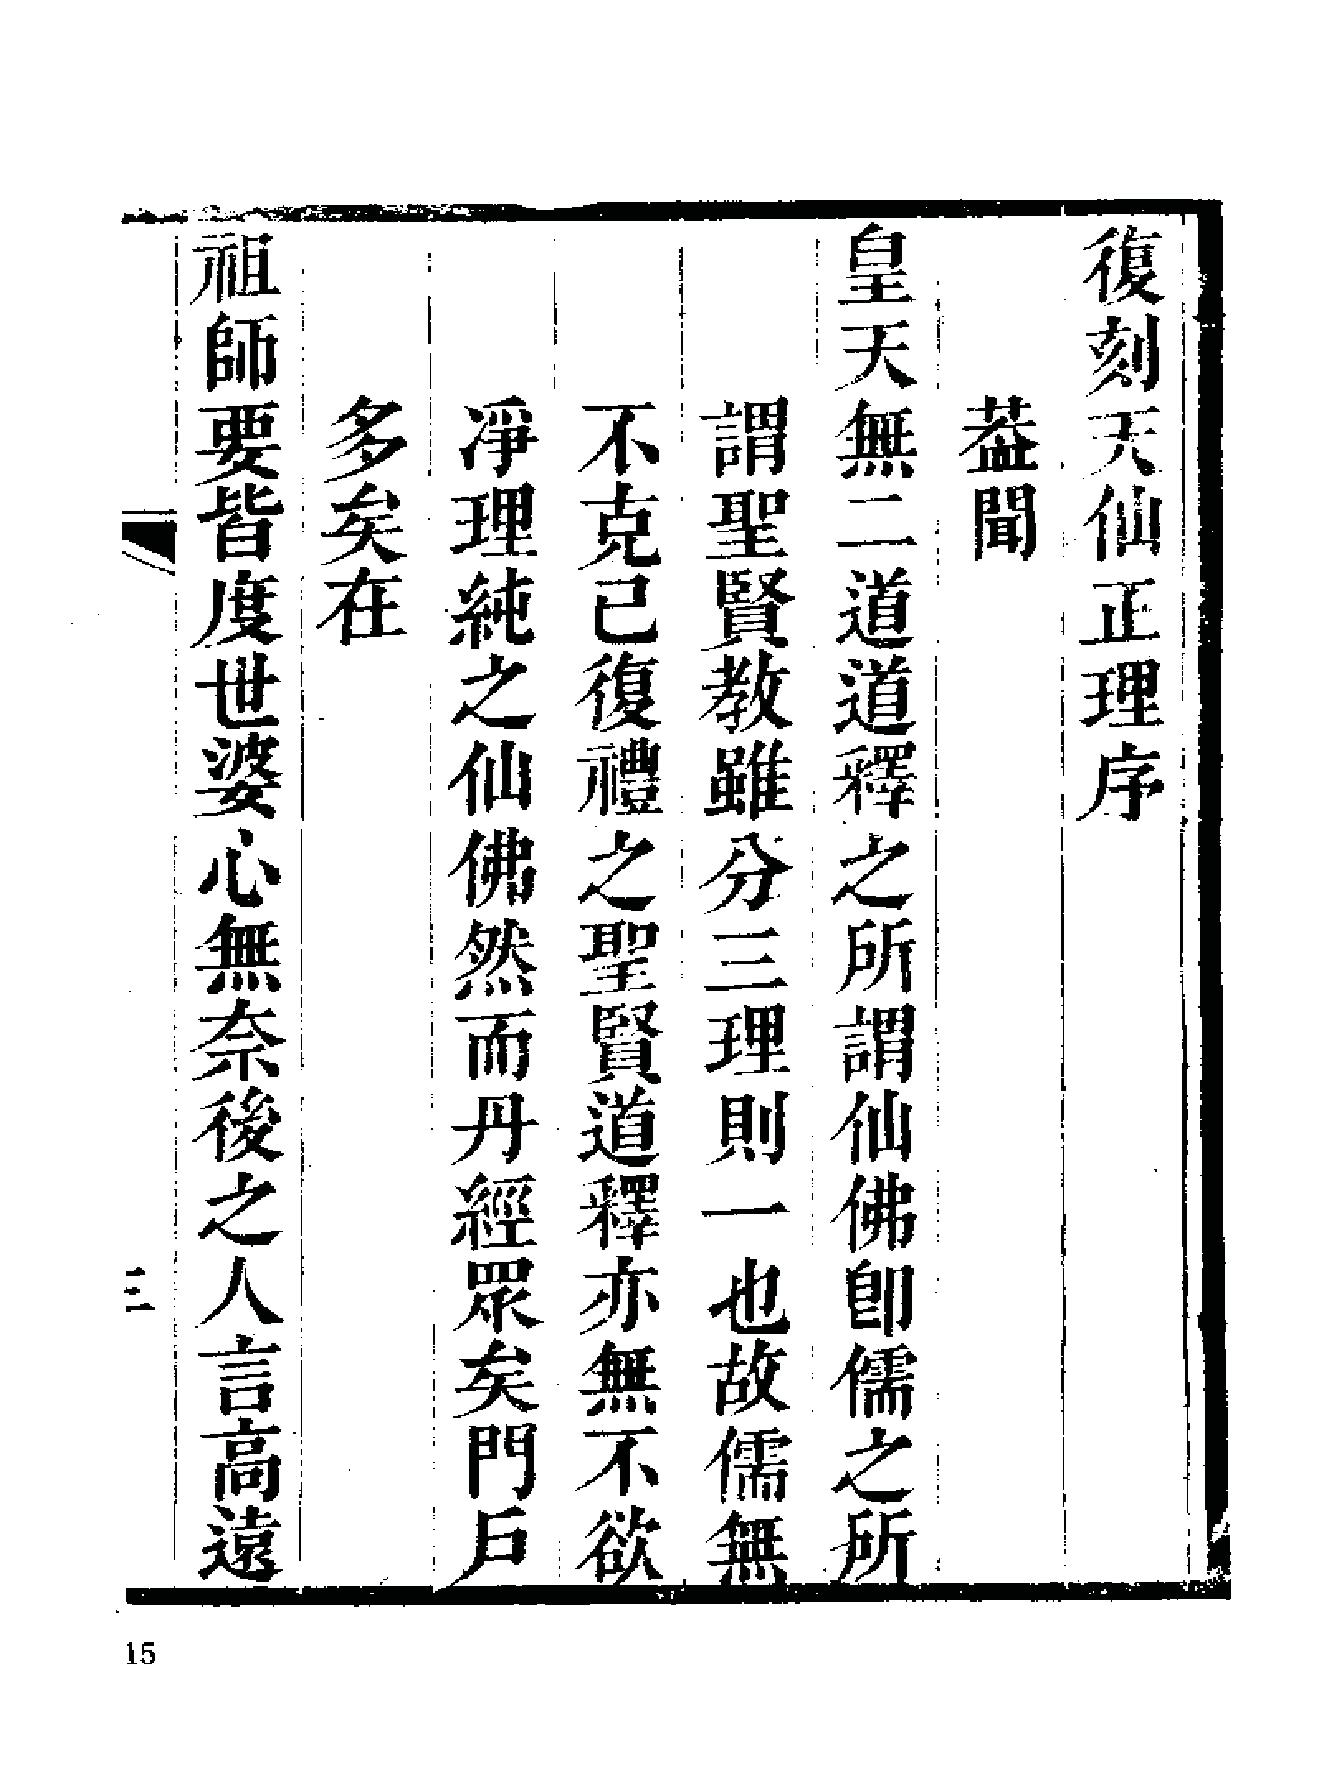 復刻天仙正理序
葢聞
皇天無二道道釋之所謂仙佛卽儒之所
謂聖賢教雖分三理則一也故儒無
不克己復禮之聖賢道釋亦無不欲
凈理純之仙佛然而丹經眾矣門戶
多矣在
祖師要皆度世婆心無奈後之人言高遠
三
15